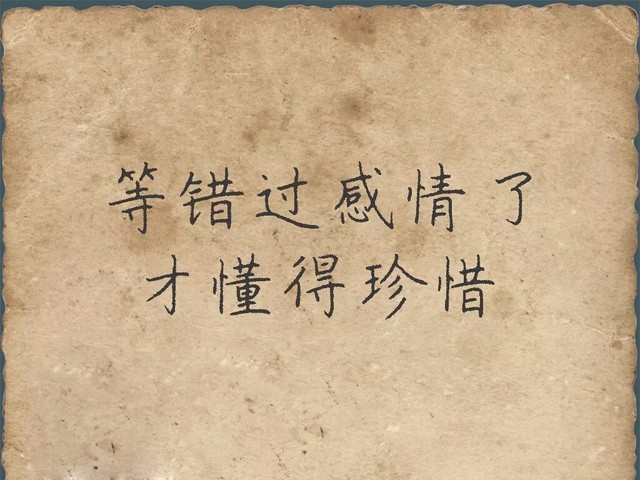 等错过感情了
才懂得珍惜